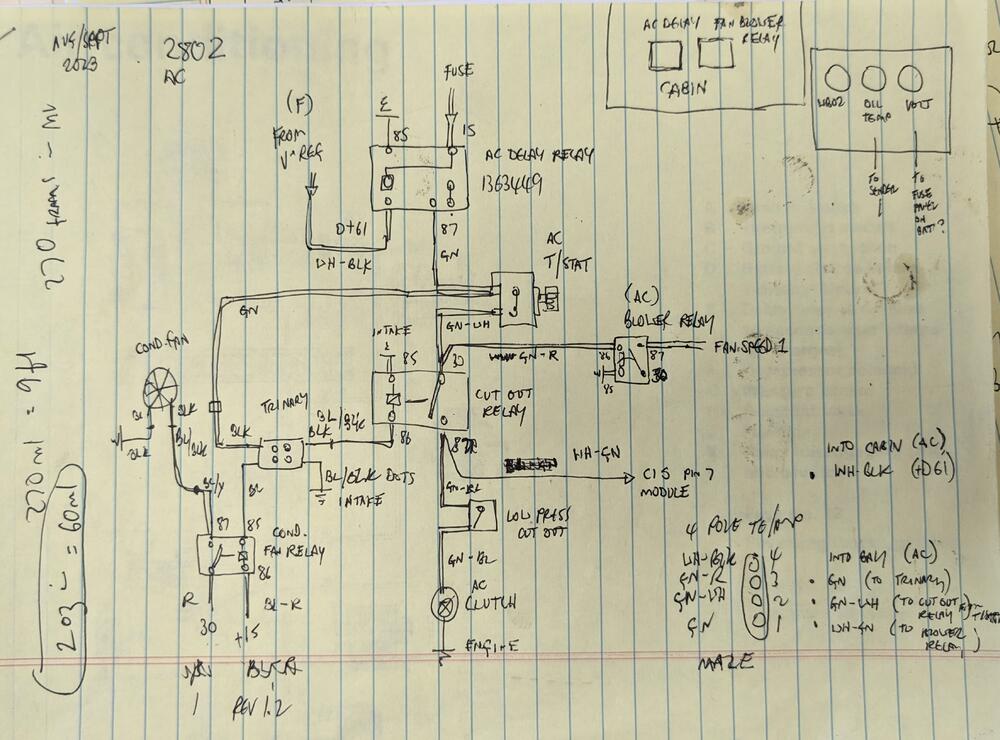 AUG/SEPT
2023
2802
AC
FUSE
(F)
FROM
V REG
85
15
AC DELAY RELAY
1363449
D+61
WH-BLK
87
GN
AC DELAY
FAN BLOWER
RELAY
CABIN
OIL
TEMP
VOLT
TO
SENDER
TO
FUSE
PANEL
ON
BATT?
AC
T/STAT
GN
GN-WH
(AC)
BLOWER RELAY
INTAKE
85
30
GN-R
86
87
FAN SPEED 1
85
30
COND.FAN
CUT OUT
RELAY
BL
BLK
BLK
BL/BLK
TRINARY
BLK
BL/BLK
BLK
86
87A
WH-GN
CIS PIN 7
MODULE
BL/BLK DOTS
INTAKE
BL/Y
BL
GN-BL
LOW PRESS
CUT OUT
87
85
COND.
FAN RELAY
86
GN-BL
R
BL-R
30
+15
AC
CLUTCH
ENGINE
INTO CABIN (AC)
• WH-BLK (+D61)
4 POLE
WH-BLK 4
GN-R 3
GN-WH 2
GN 1
MALE
INTO BAY (AC)
• GN (TO TRINARY)
• GN-WH (TO CUT OUT
RELAY
• WH-GN (TO BLOWER
RELAY)
1 REV 1.2
270 grams
270ml = 9fl
203 = 60ml